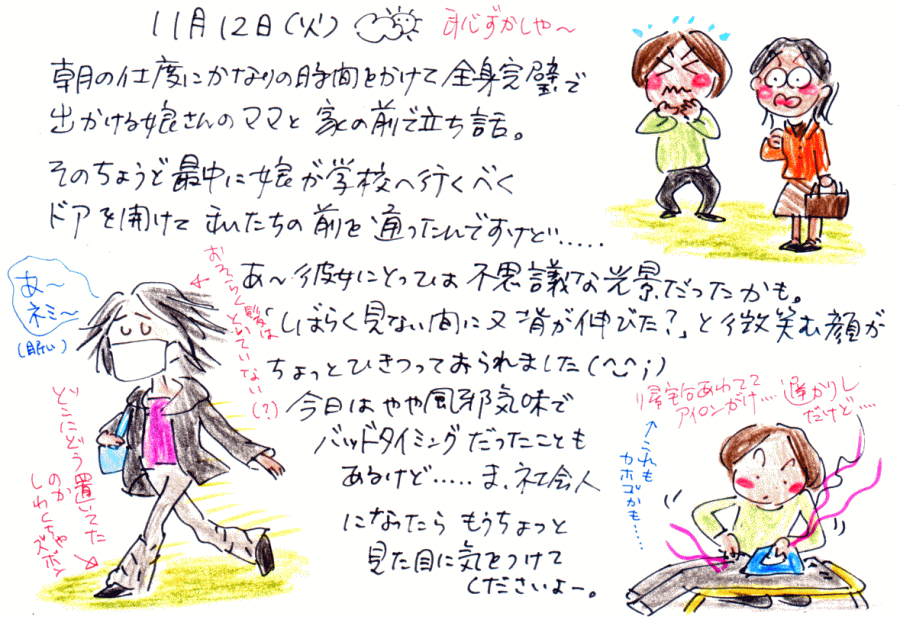 11月12日(火)
恥ずかしや〜
朝の仕度にかなりの時間をかけて全身完璧で
出かける娘さんのママと家の前で立ち話。
そのちょうど最中に娘が学校へ行くべく
ドアを開けて私たちの前を通ったんですけど.....
あ〜彼女にとっては不思議な光景だったかも。
「しばらく見ない間に又背が伸びた?」と微笑む顔が
ちょっとひきつっておられました(^◡^;)
今日はやや風邪気味で
バッドタイミングだったことも
あるけど.....ま、社会人
になったらもうちょっと
見た目に気をつけて
くださいよー。
あ〜
ネミ〜
(眠い)
おそらく髪は
といていない
(?)
どこにどう置いてた
のか
しわくちゃ
ズボン
帰宅後あわてて
アイロンがけ...
遅かりし
だけど....
←これも
カホゴかも...